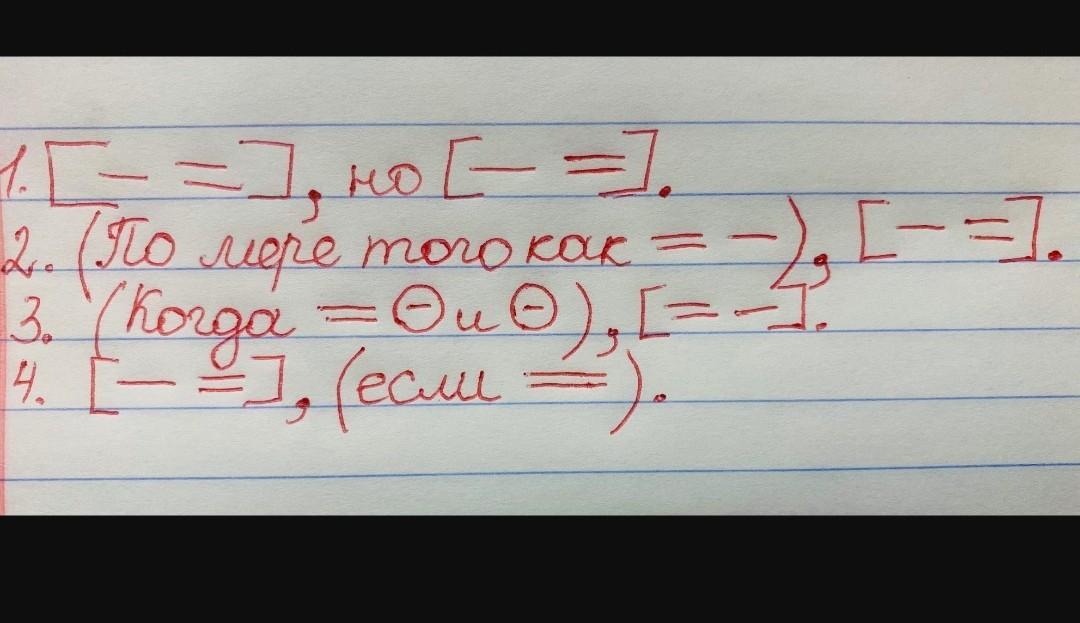 1. [ — = ], но [ — = ].
2. (По мере того как = — ), [ — = ].
3. (Когда = ⊖ и ⊖ ), [ = — ].
4. [ — = ], (если = ).